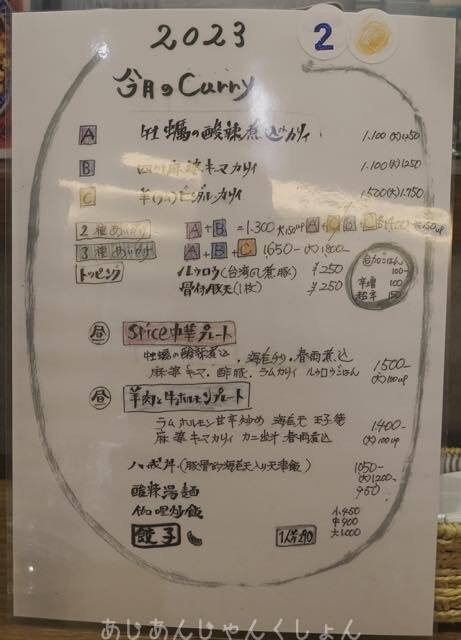 2023
2
今月のCurry
A 牡蠣の酸辣煮込カリィ 1.100(大)1.250
B 四川麻婆キマカリィ 1.100(大)1.250
C 羊(ラム)ビンダルーカリィ 1.500(大)1.750
2種あいがけ A+B=1.300 大150up
3種あいがけ A+B+C 1650-(大)1,800-
トッピング ルゥロウ(台湾風煮豚) ¥250
骨付豚天(1枚) ¥250
100-
辛増 100
超辛 150
昼 Spice中華プレート
牡蠣の酸辣煮込、海老チリ、春雨煮込
麻婆キマ、酢豚、ラムカリィ ルゥロウごはん
1500-
(大)100up
昼 羊肉と牛ホルモンプレート
ラムホルモン甘辛炒め 海老天 玉子
麻婆キマカリィ カニ出汁春雨煮込
1400-
(大)100up
八戒丼(豚骨付海老天入り天津飯) 1050-
(大)1200-
酸辣湯麺 950
咖哩炒飯 小450
中900
大1.000
餃子 1人前290
あじあんじゃんくしょん